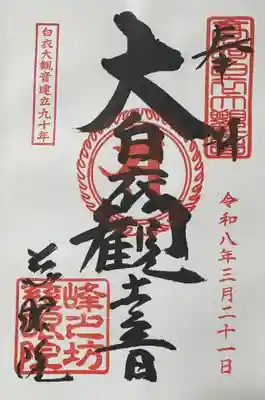 奉拝
令和八年三月二十一日
大白衣観世音
慈眼院
白衣大観音建立九十年